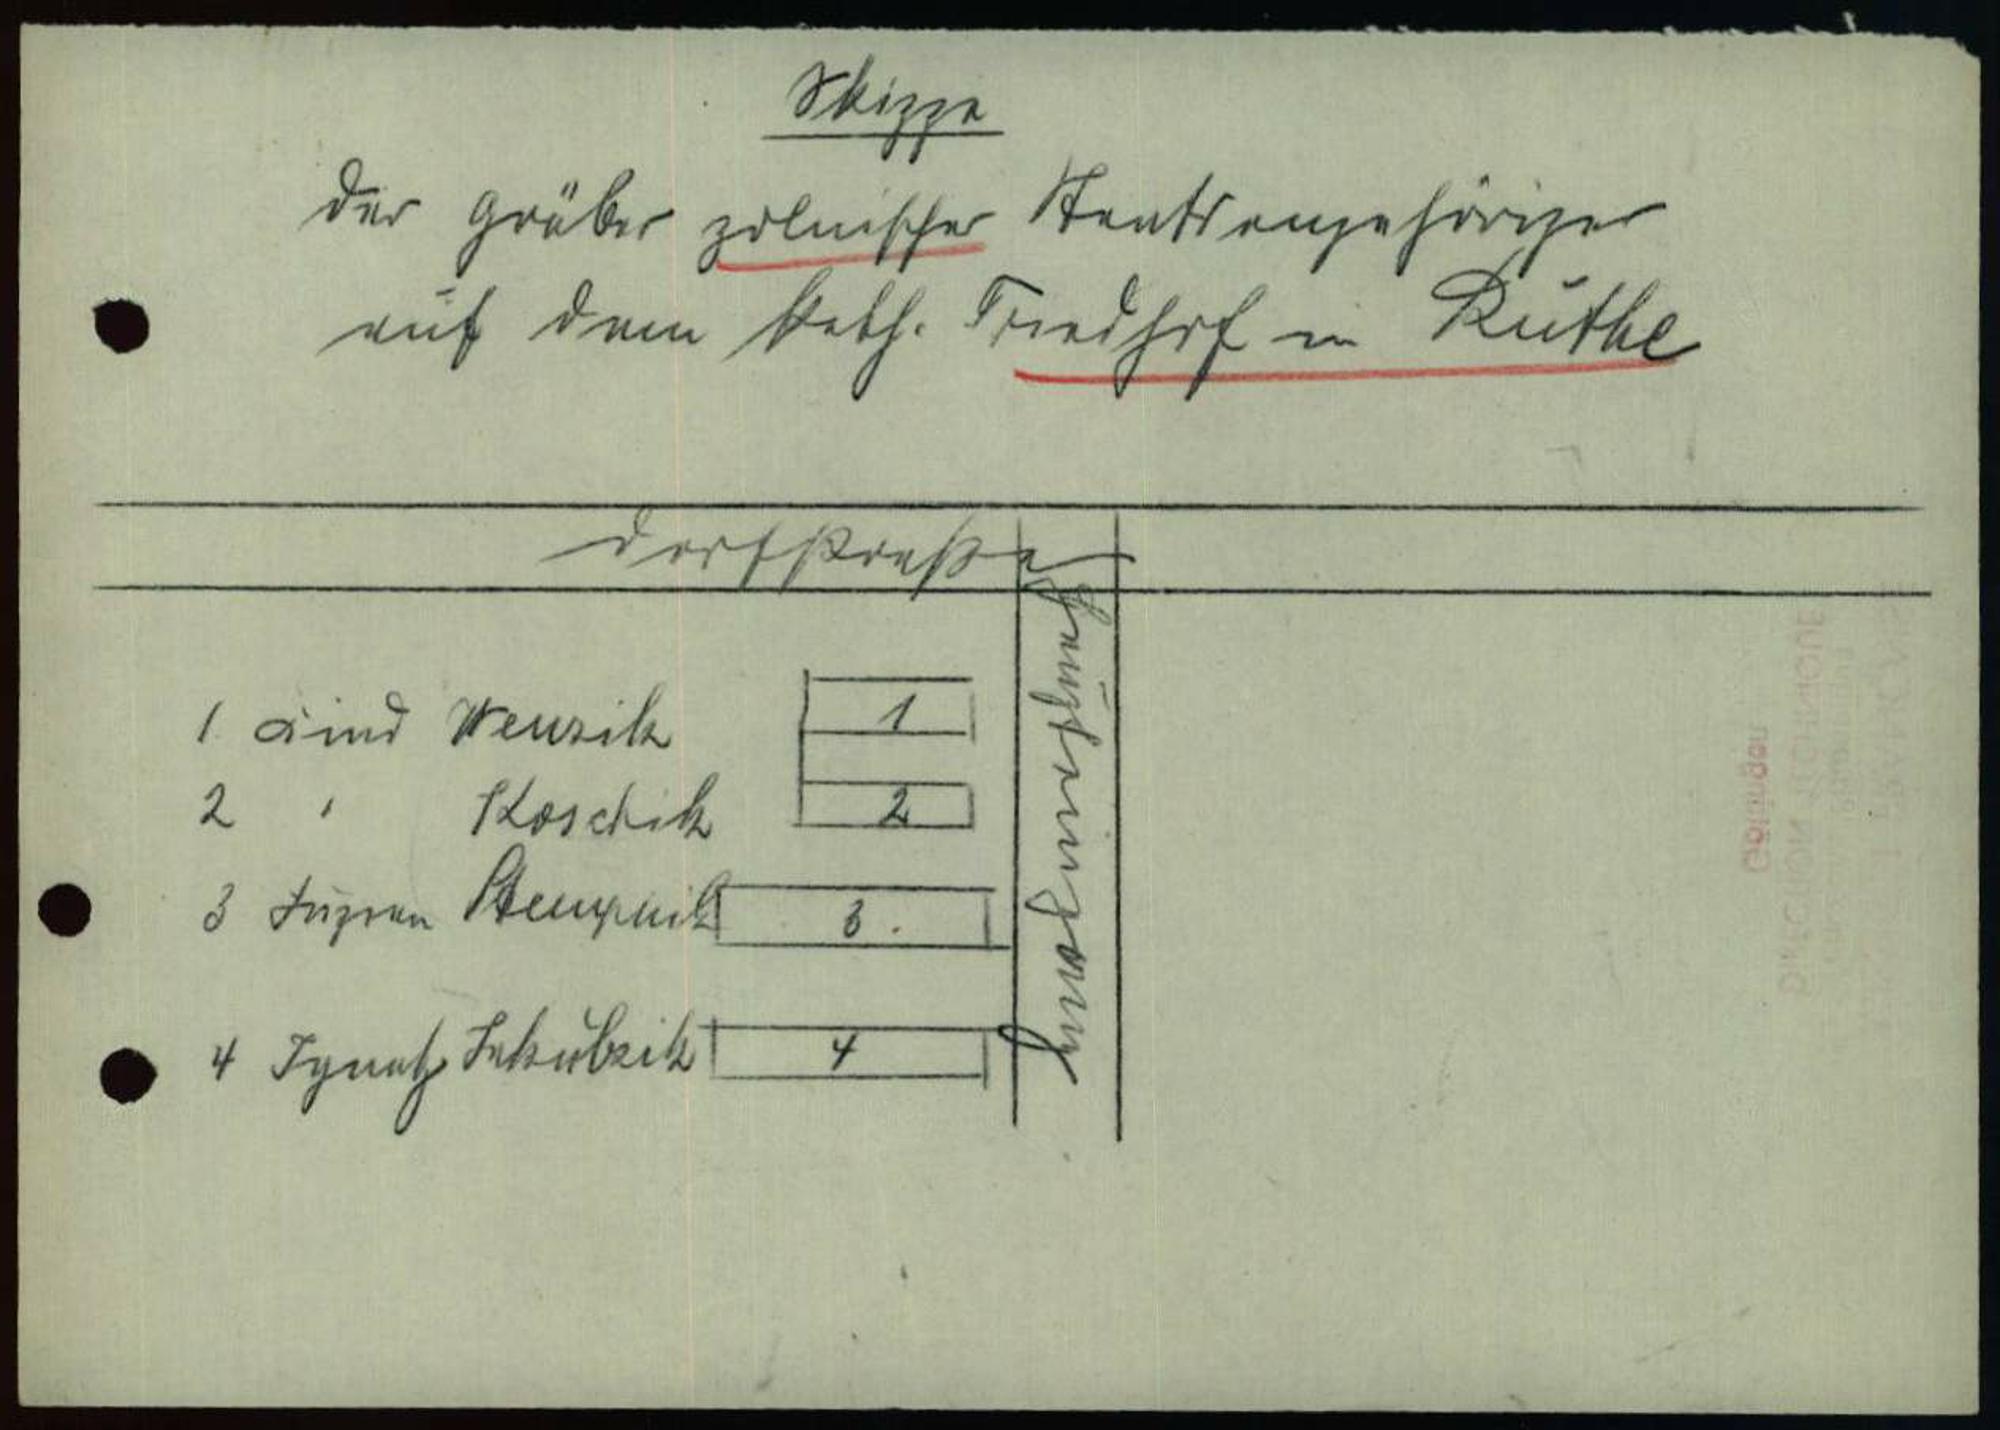 Skizze
der Gräber polnischer Staatsangehöriger
auf dem kath. Friedhof in Ruthe
Dorfstraße
Haupteingang
1 Kind Wenzik 1
2 " Koschik 2
3 Stempnik 3
4 Ignatz Jakubzik 4
Göttingen